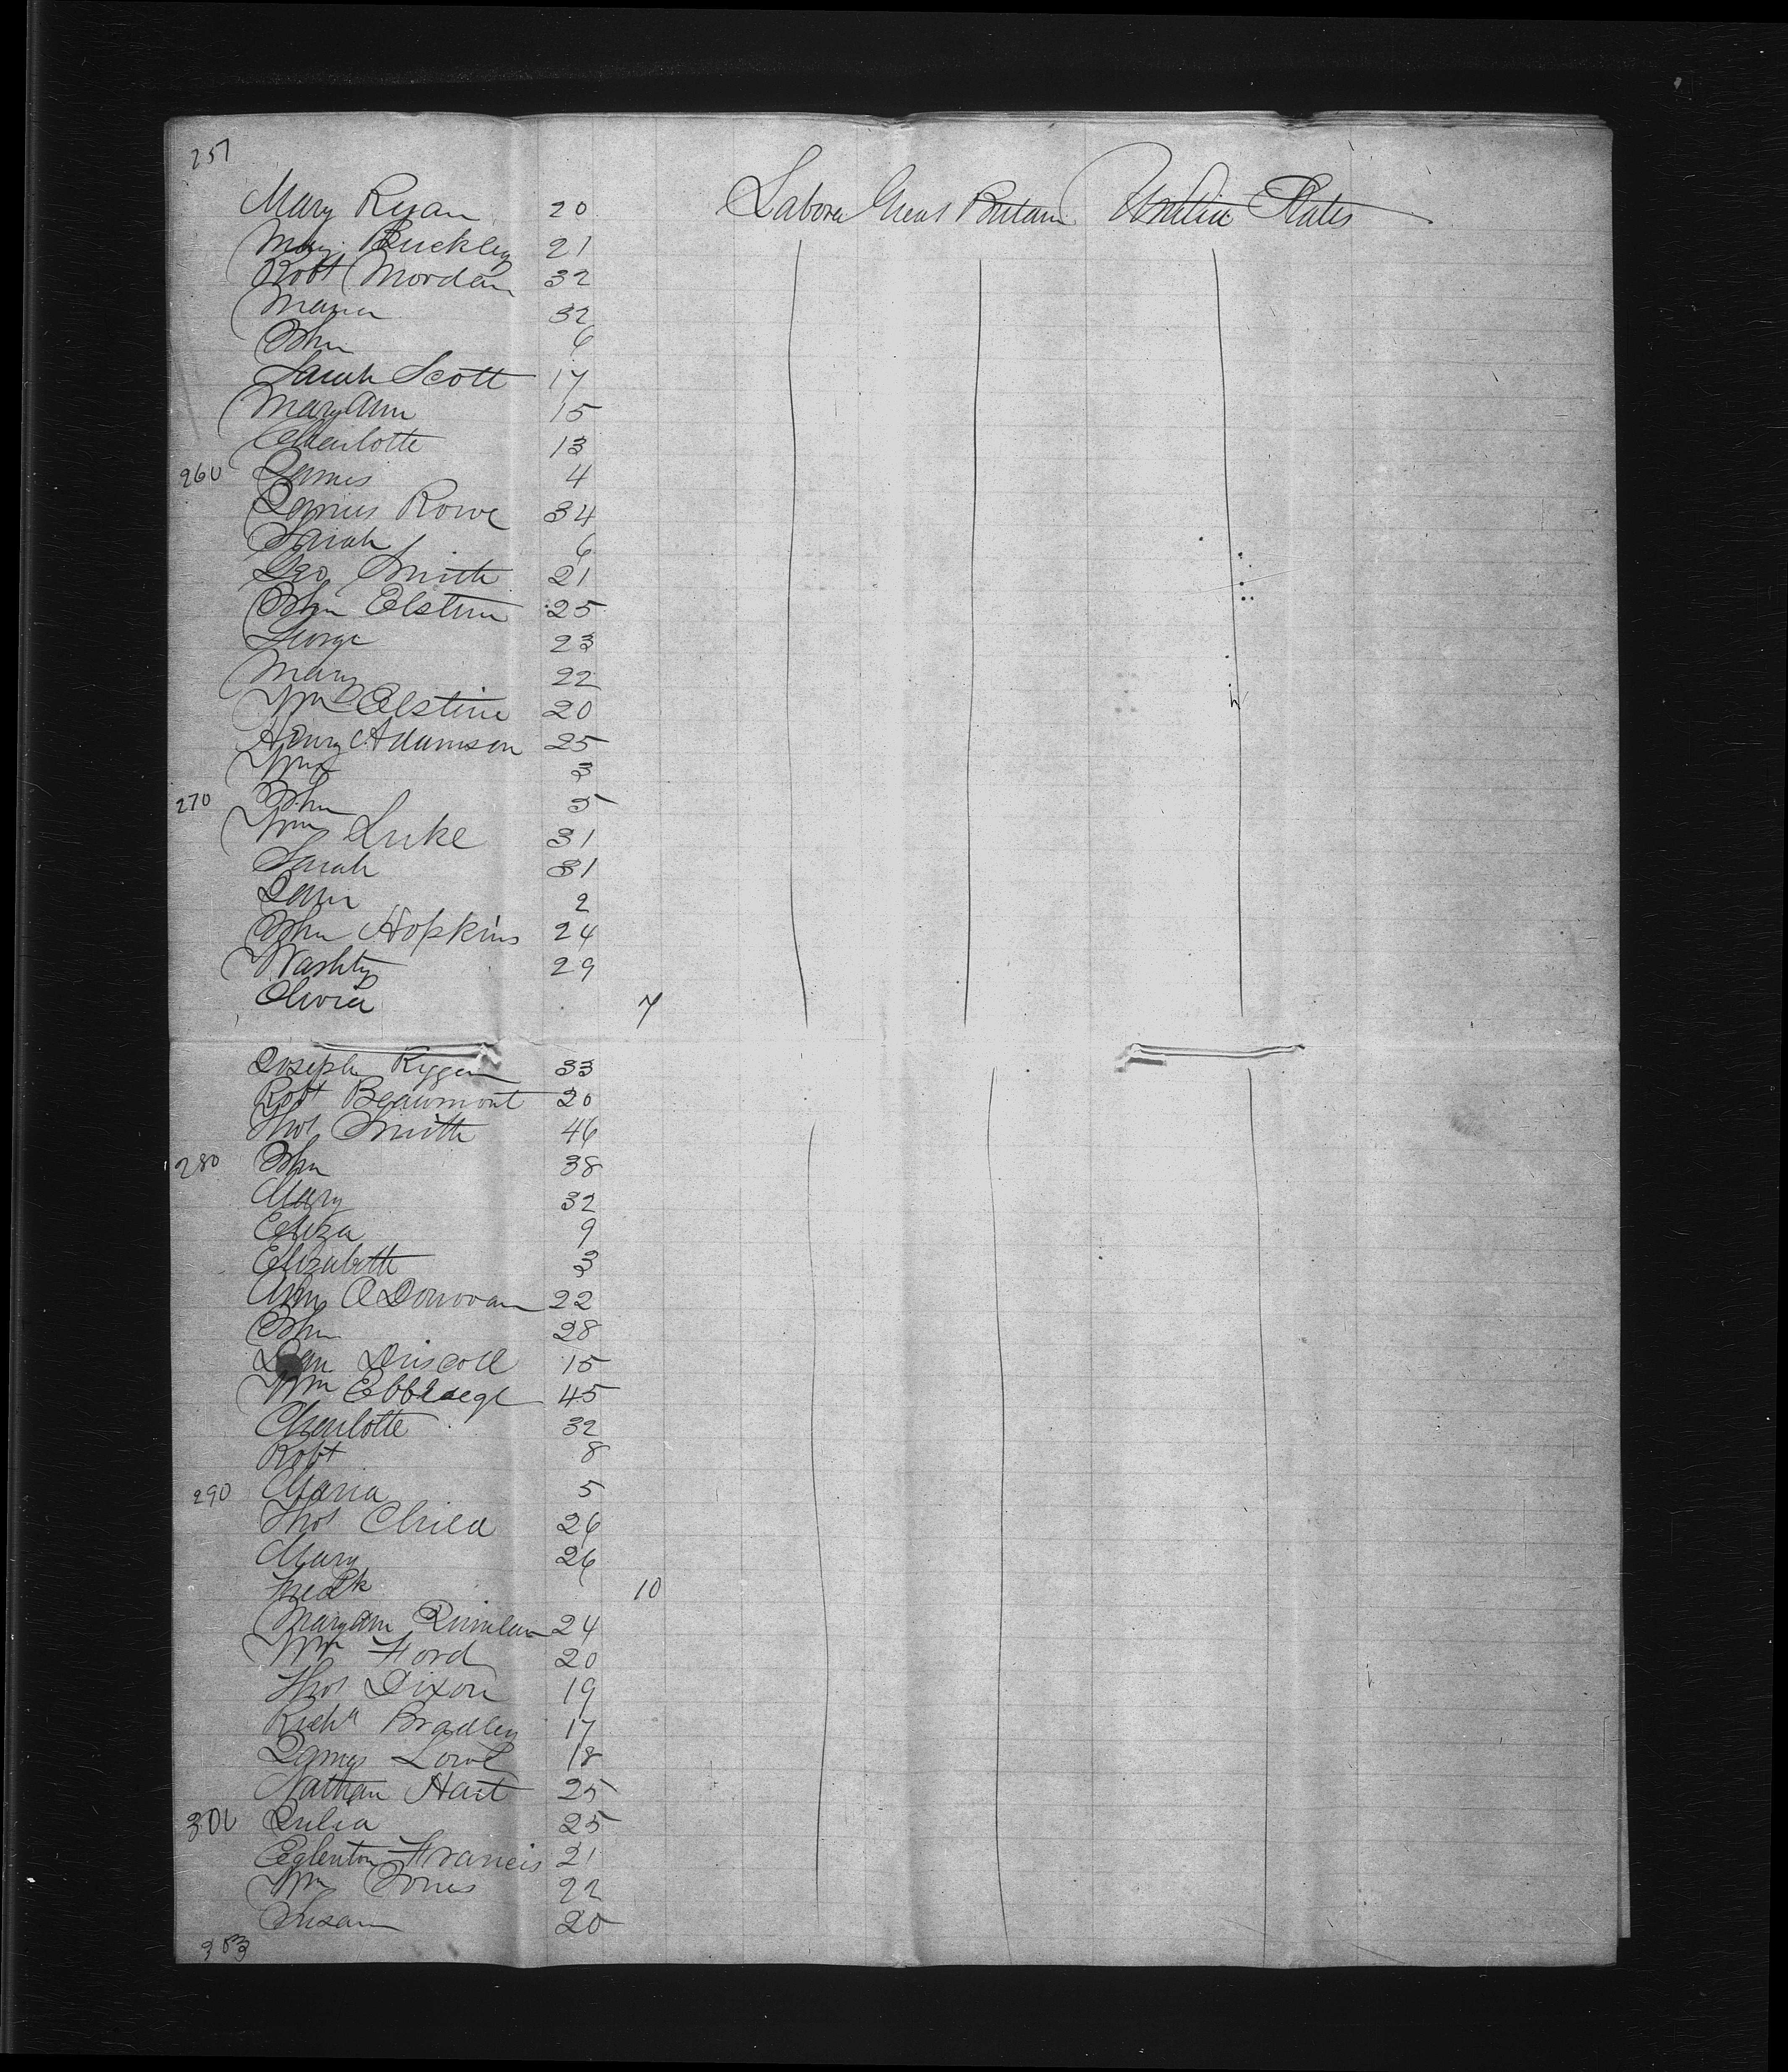 257
Mary Ryan 20 Labora Great Britain United States
Mary Buckley 21
Robt Mordan 32
Maria 32
John 6
Sarah Scott 17
Mary Ann 15
Charlotte 13
260 James 4
James Rowe 34
Sarah 6
Geo Smith 21
John Elstine 25
George 23
Mary 22
Wm Elstine 20
Henry Adamson 25
Wm 3
270 John 5
Wm Luke 31
Sarah 31
2
John Hopkins 24
Washty 29
Olivia 7
Joseph Riggen 33
Robt Beaumont 20
Thos Smith 46
280 John 38
Mary 32
Eliza 9
Elizabeth 3
O Donovan 22
John 28
Dan Driscoll 15
Wm 45
Charlotte 32
Robt 8
290 Maria 5
Thos Child 26
Mary 26
Fredk 10
Maryann 24
Wm Ford 20
Thos Dixon 19
Richd Bradley 17
James Lowe 18
Nathan Hart 25
300 Julia 25
Eglenton Francis 21
Wm Jones 22
Susan 20
303